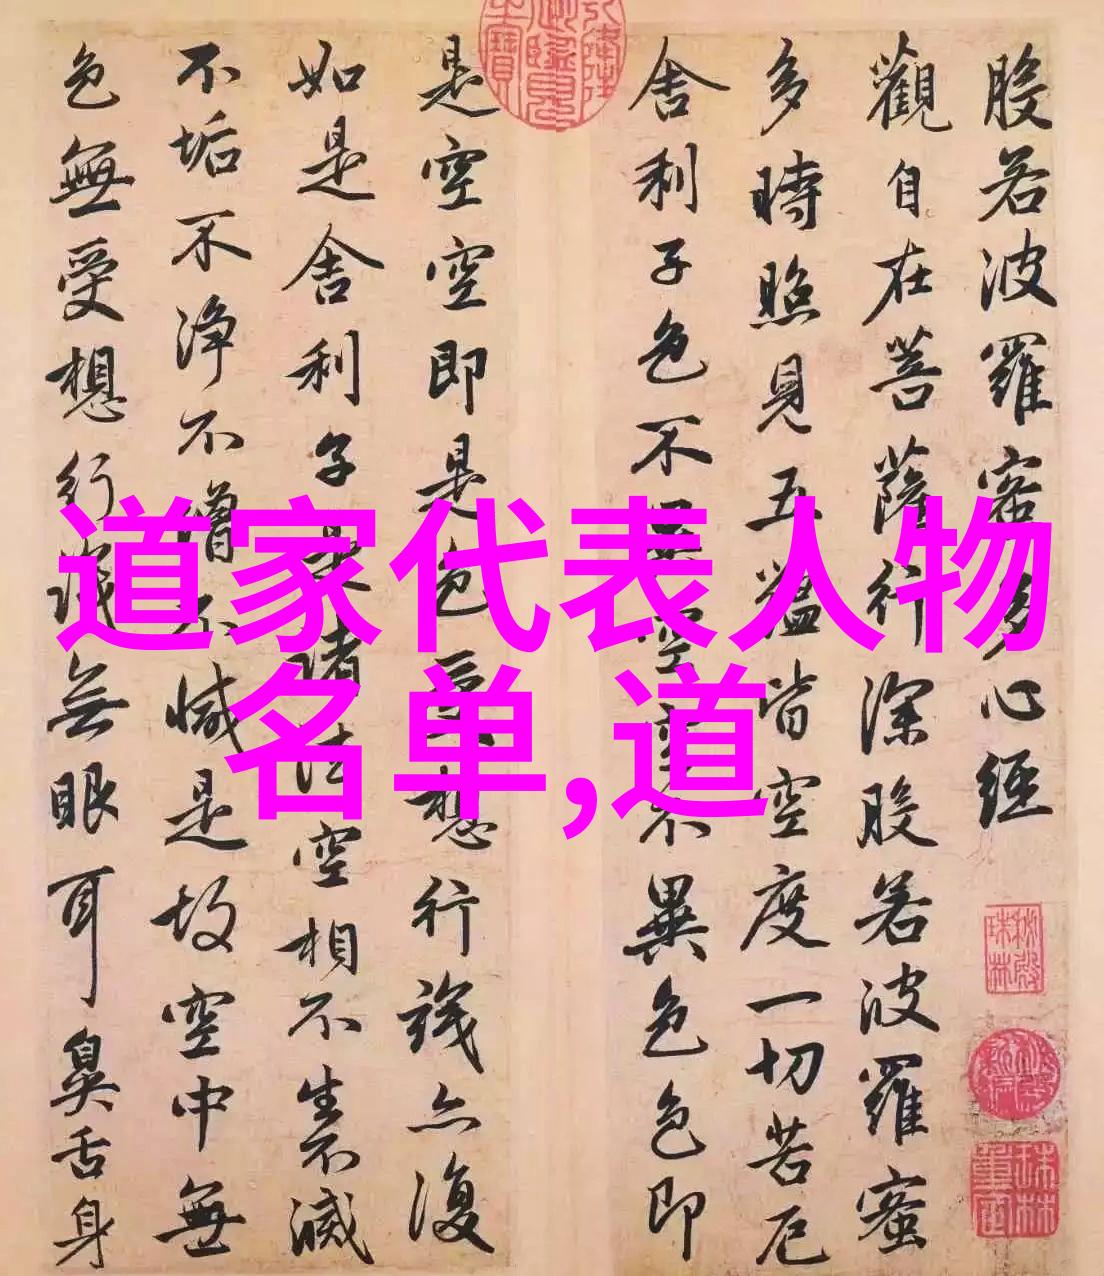 道家代表人物
名单,道
般若波羅蜜多心經
觀自在菩薩行深般若波羅蜜
多時照見五蘊皆空度一切苦厄
舍利子色不異空空不異色色即
是空空即是色受想行識亦復
如是舍利子是諸法空相不生不滅
不垢不淨不增不減是故空中無
色無受想行識無眼耳鼻舌身
秘殿珠林
珠林重定